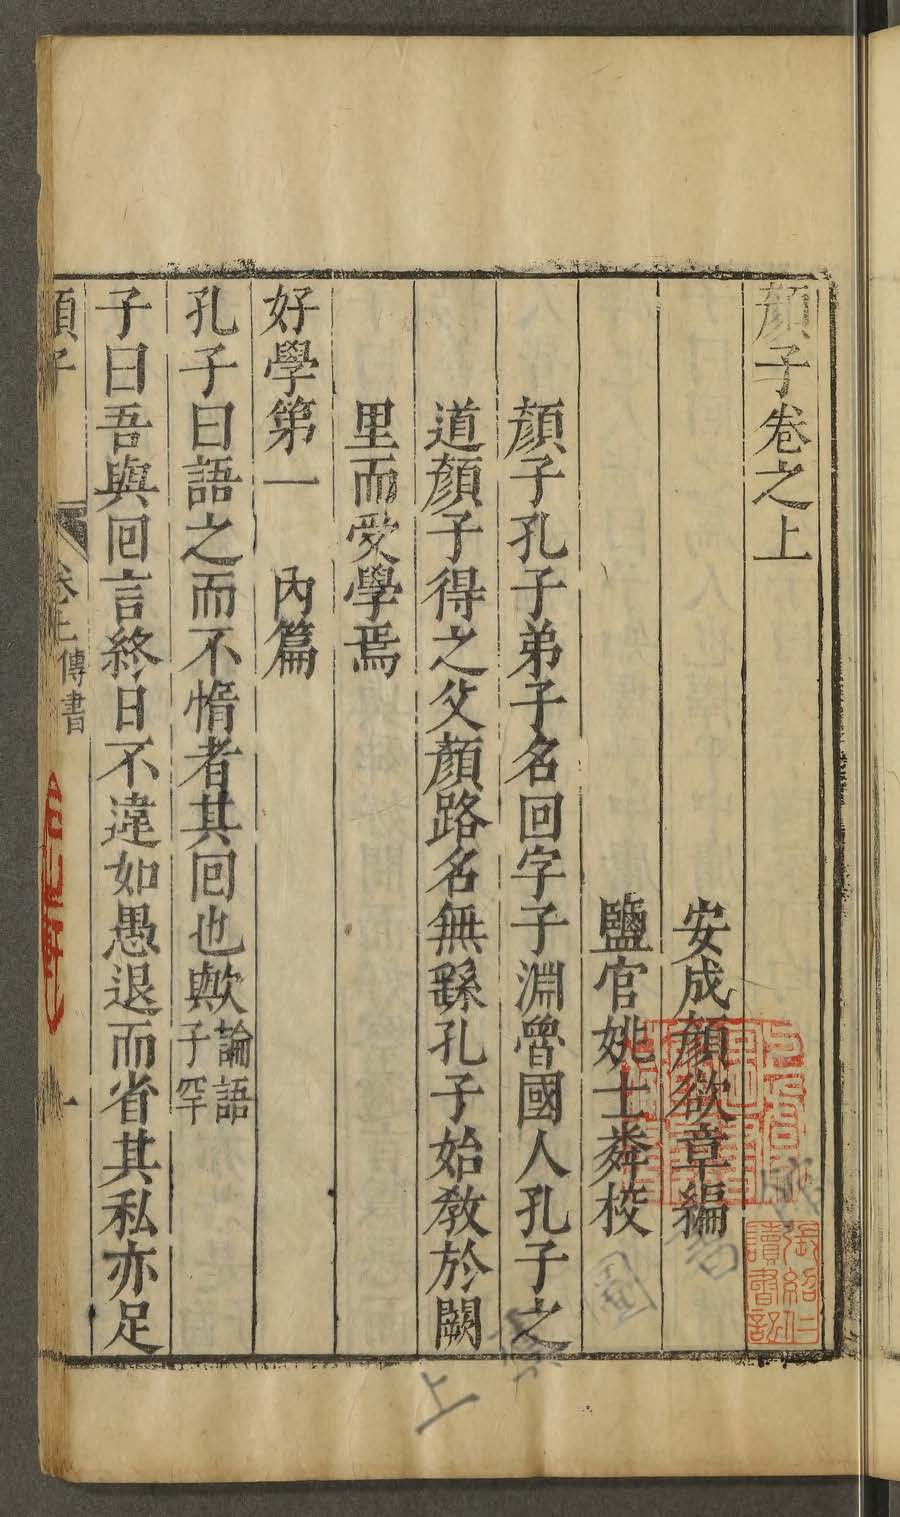 顔子卷之上
安成顔欲章編
鹽官姚士粦校
顔子孔子弟子名回字子淵魯國人孔子之
道顔子得之父顔路名無繇孔子始教於闕
里而受學焉
好學第一　內篇
孔子曰語之而不惰者其回也歟論語
子罕
子曰吾與回言終日不違如愚退而省其私亦足
卷上
傳書
一
張紹仁
讀書記
上